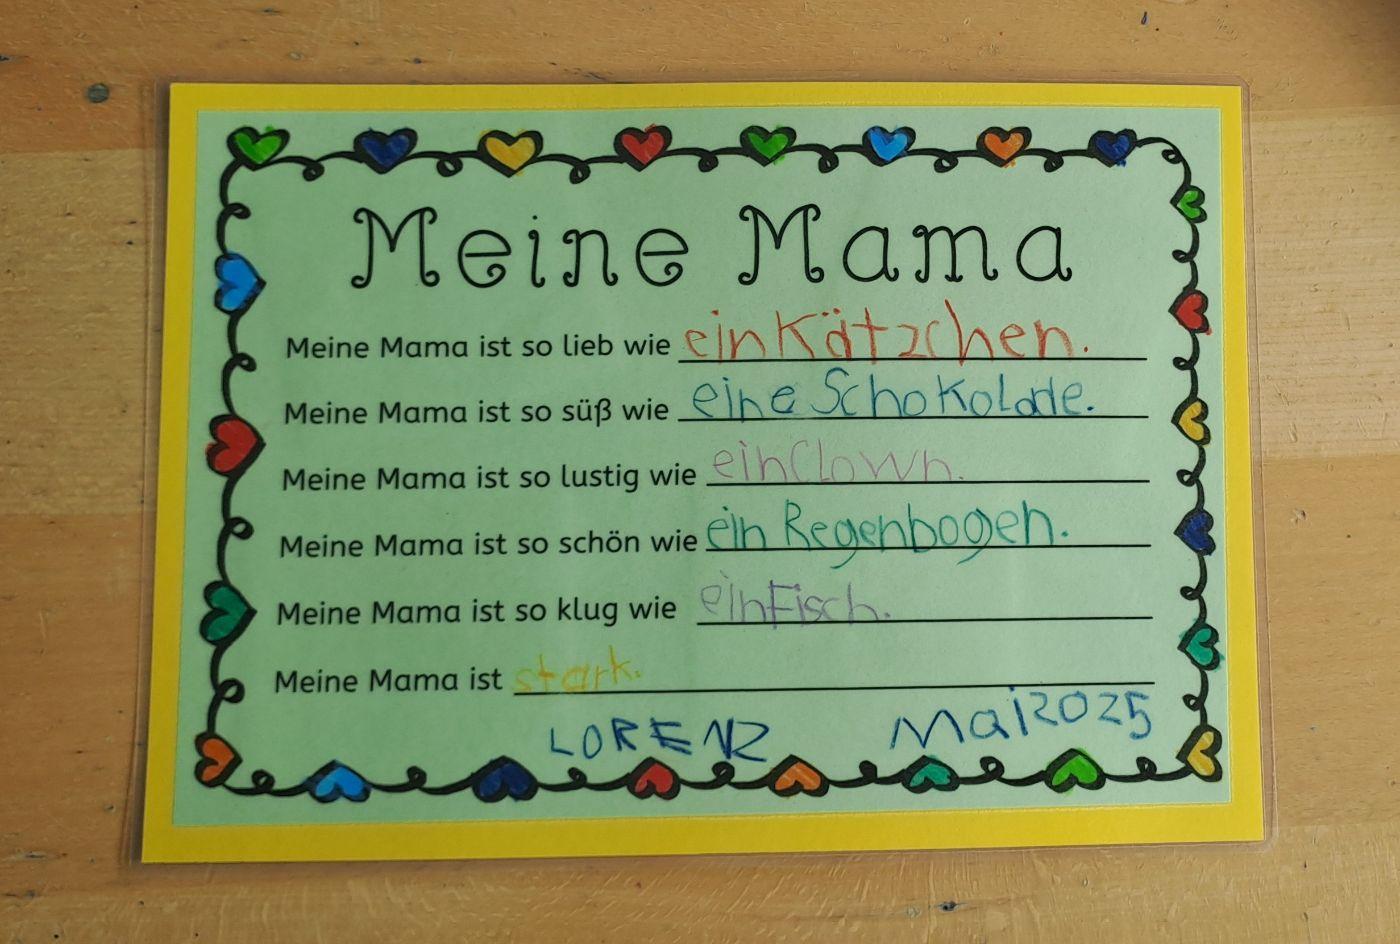 Meine Mama
Meine Mama ist so lieb wie ein Kätzchen.
Meine Mama ist so süß wie eine Schokolade.
Meine Mama ist so lustig wie ein Clown.
Meine Mama ist so schön wie ein Regenbogen.
Meine Mama ist so klug wie ein Fisch.
Meine Mama ist stark.
LORENZ Mai 2025